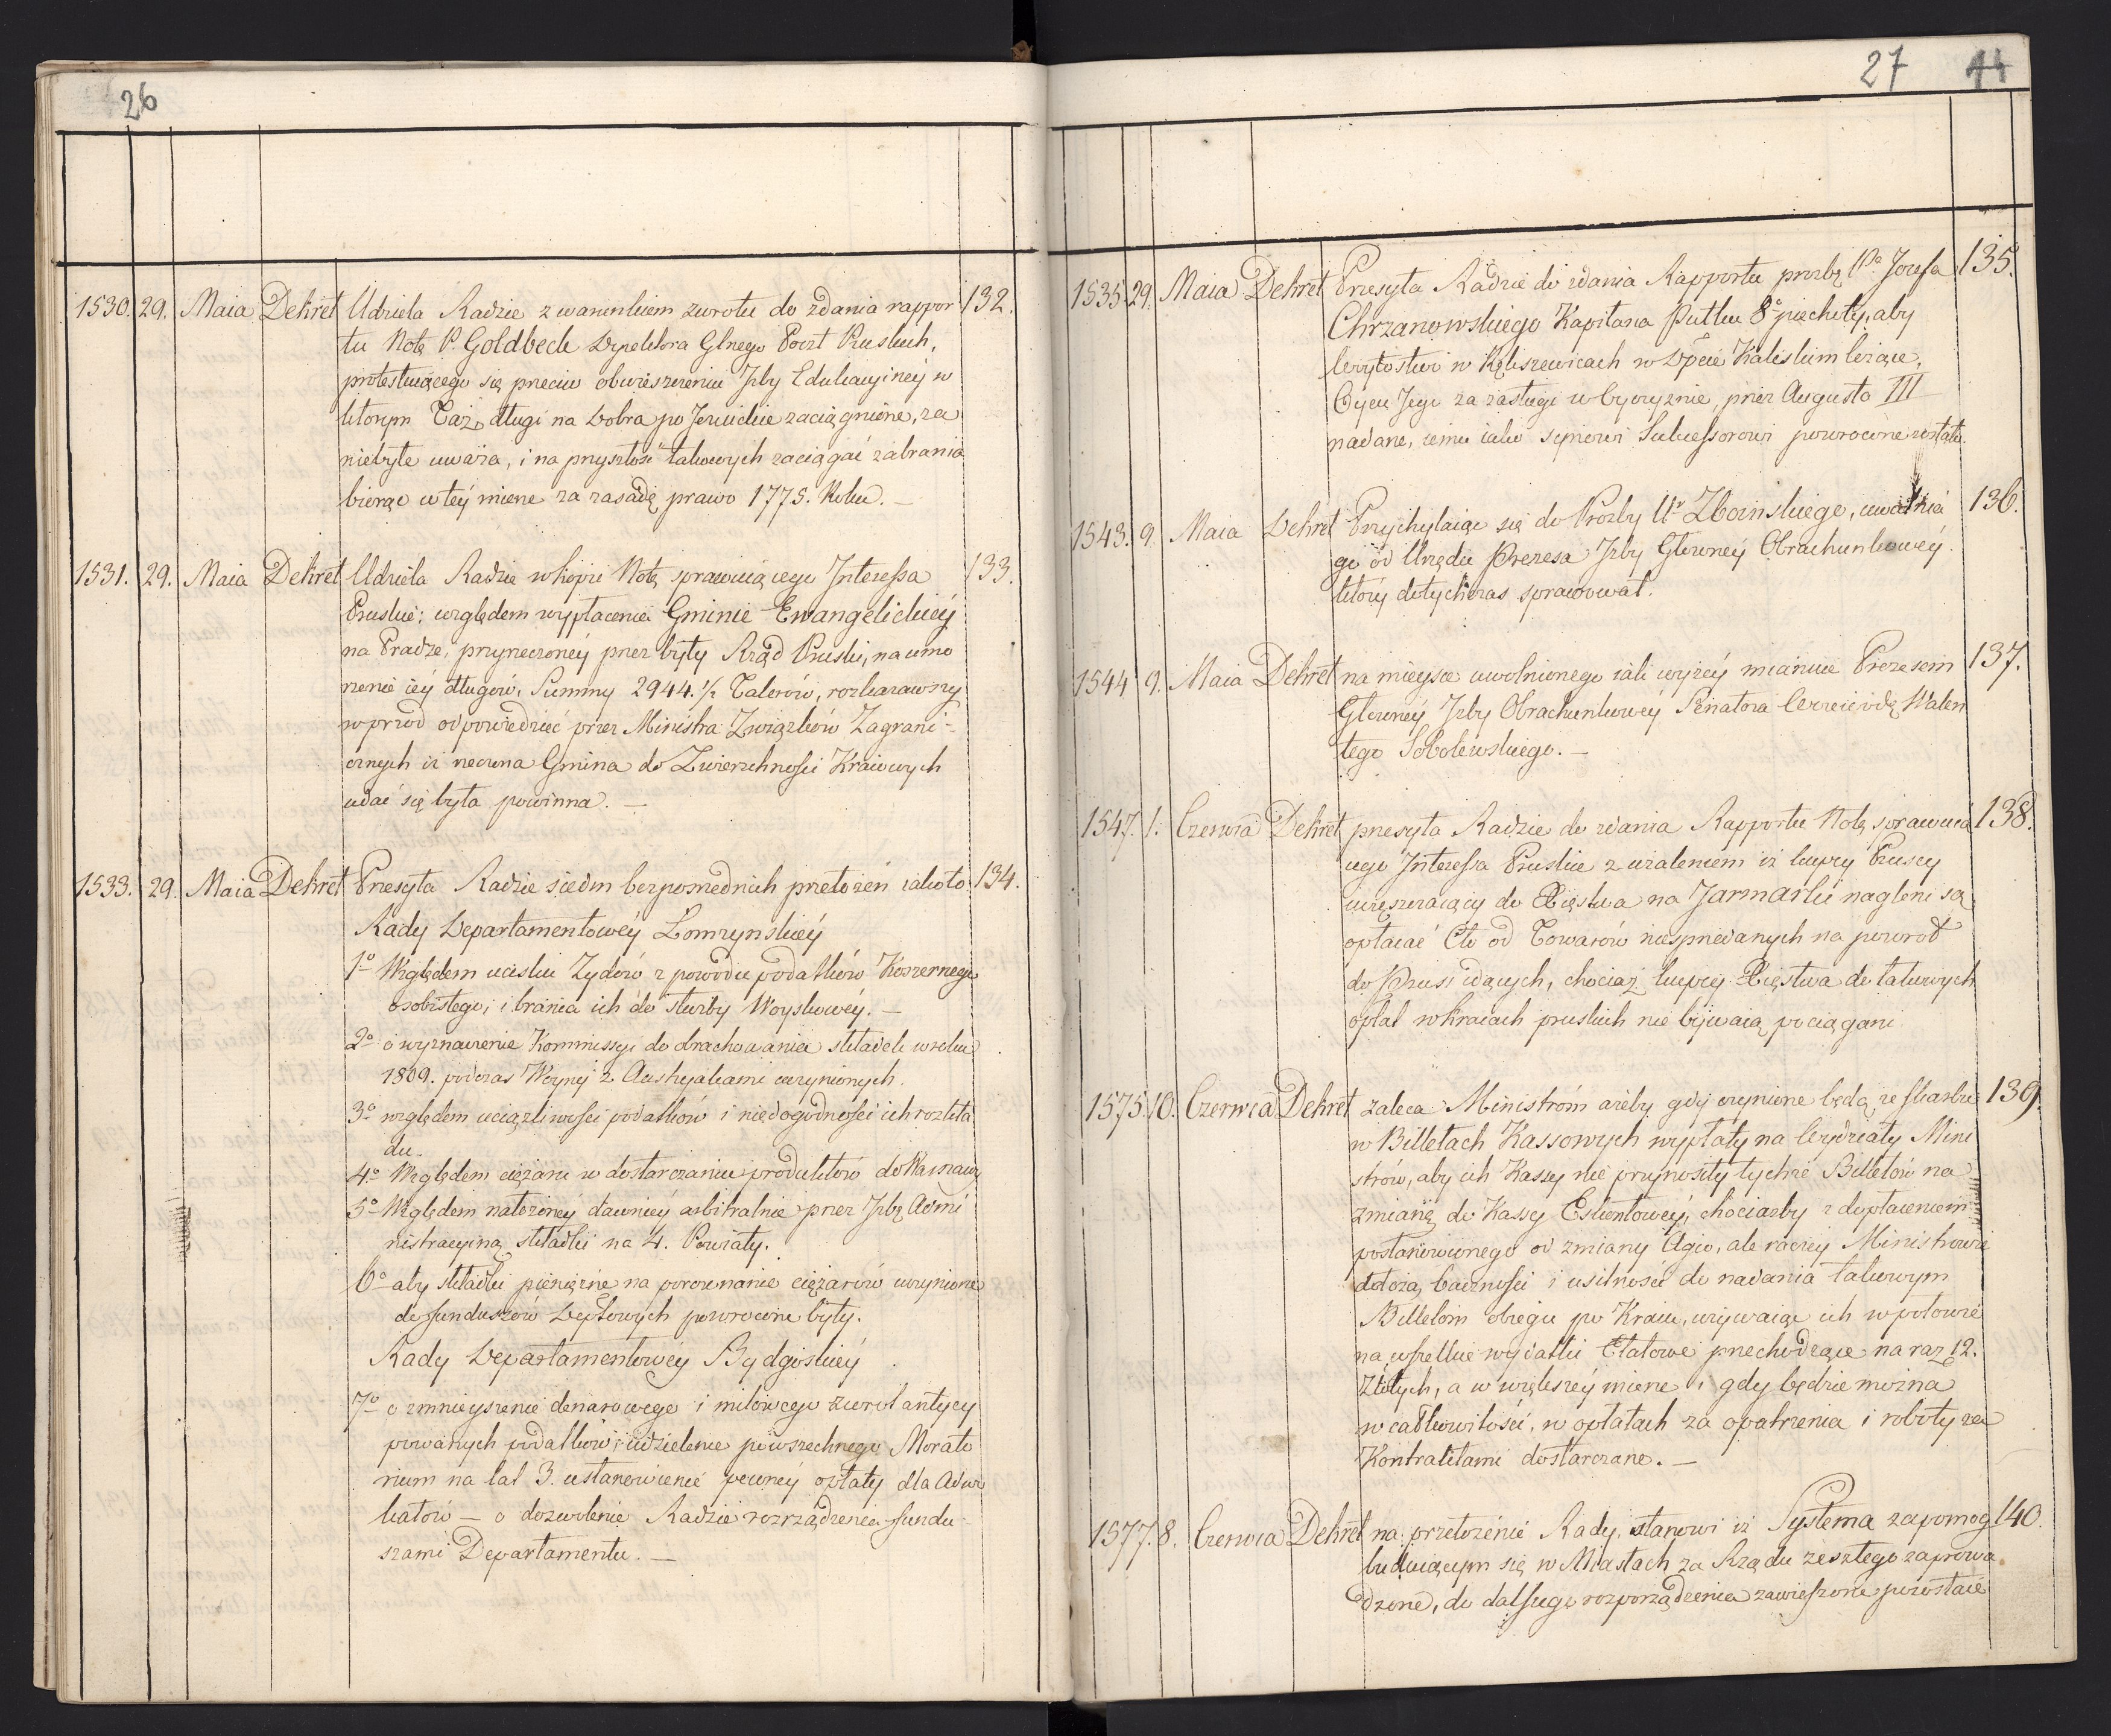 26
1530. 29. Maia Dekret Udziela Radzie z warunkiem zwrotu do zdania rappor 132.
tu Notę P. Goldbeck Dyrektora Glnego Poczt Pruskich,
protestuiącego się przeciw obwieszczeniu Izby Edukacyiney w
którym Taż długi na Dobra po Jezuickie zaciągnione, za
niebyłe uważa, i na przyszłość takowych zaciągać zabrania
biorąc w tey mierze za zasadę prawo 1775. Roku. —
1531. 29. Maia Dekret Udziela Radzie w kopii Notę sprawuiącego Interessa 133.
Pruskie; względem wypłacenia Gminie Ewangelickiey
na Pradze, przyrzeczoney przez były Rząd Pruski, na umo
rzenie iey długów, Summy 2944. ½ Talerów, rozkazawszy
wprzód odpowiedzieć przez Ministra Związków Zagrani-
cznych iż rzeczona Gmina do Zwierzchności Kraiowych
udać się była powinna. —
1533. 29. Maia Dekret Przesyła Radzie siedm bezpośrednich przełożeń iako to 134.
Rady Departamentowey Łomżynskiey
1o Względem ucisku Żydów z powodu podatków Koszernego
osobistego, i brania ich do służby Woyskowey. —
2o o wyznaczenie Kommissyi do obrachowania składek w roku
1809. podczas Woyny z Austryakami uczynionych.
3o względem uciążliwości podatków i niedogodności ich rozkła
du.
4o Względem ciężaru w dostarczaniu produktów do Warszawy
5o Względem nałożoney dawniey arbitralnie przez Izbę Admi
nistracyiną składki na 4. Powiaty.
6o aby składki pieniężne na porównanie ciężarów uczynione
do funduszów Deptowych powrócone były.
Rady Departamentowey Bydgoskiey
7o o zmnieyszenie denarowego i milowego zwrot antycy
powanych podatków, udzielenie powszechnego Morato
rium na lat 3. ustanowienie pewney opłaty dla Adwo
katów — o dozwolenie Radzie rozrządzenia fundu-
szami Departamentu. —
27 44
1535. 29. Maia Dekret Przesyła Radzie do zdania Rapportu prozbę Pa Jozefa 135.
Chrzanowskiego Kapitana Pułku 8o piechoty, aby
w Dpcie Kaliskim leżące,
Oycu Jego za zasługi w Oyczyznie, przez Augusta III
nadane, iemu iako synowi Sukcessorowi powrócone zostało.
1543. 9. Maia Dekret Przychylaiąc się do Prozby Ur Zboinskiego, uwalnia 136.
go od Urzędu Prezesa Izby Głowney Obrachunkowey
który dotychczas sprawował.
1544 9. Maia Dekret na mieysce uwolnionego iak wyżey mianuie Prezesem 137.
Głowney Izby Obrachunkowey Senatora Woiewodę Walen
tego Sobolewskiego. —
1547. 1. Czerwca Dekret przesyła Radzie do zdania Rapportu Notę sprawuią 138.
cego Interessa Pruskie z użaleniem iż kupcy Pruscy
uczęszczaiący do Xięstwa na Jarmarki nagleni są
opłacać Cło od Towarów niesprzedanych na powrót
do Pruss idących, chociaż kupcy Xięstwa do takowych
opłat w Kraiach pruskich nie bywaią pociągani
1575. 10. Czerwca Dekret zaleca Ministróm ażeby gdy czynione będą ze skarbu 139.
w Billetach Kassowych wypłaty na Wydziały Mini
strów, aby ich Kassy nie przynosiły tychże Billetów na
zmianę do Kassy Eskontowey, chociażby z dopłaceniem
postanowionego od zmiany Agio, ale raczey Ministrowie
dołożą baczności i usilności do nadania takowym
Billetom obiegu po Kraiu, używaiąc ich w połowie
na wszelkie wydatki Etatowe przechodzące na raz 12.
Złotych, a w większey mierze i gdy będzie można
w całkowitości, w opłatach za opatrzenia i roboty za
Kontraktami dostarczane. —
1577. 8. Czerwca Dekret na przełożenie Rady, stanowi iż Systema zapomog 140.
buduiącym się w Miastach za Rządu zeszłego zaprowa
dzone, do dalszego rozporządzenia zawieszone pozostaie